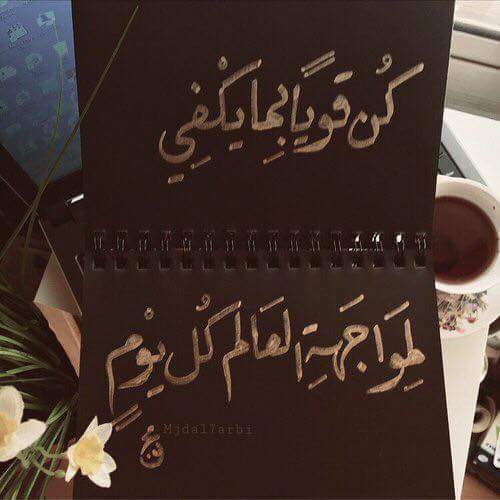 كُن قويًا بِما يَكْفِي
لِمواجَهةِ العَالم كُل يوْمٍ
Mjdal7arbi